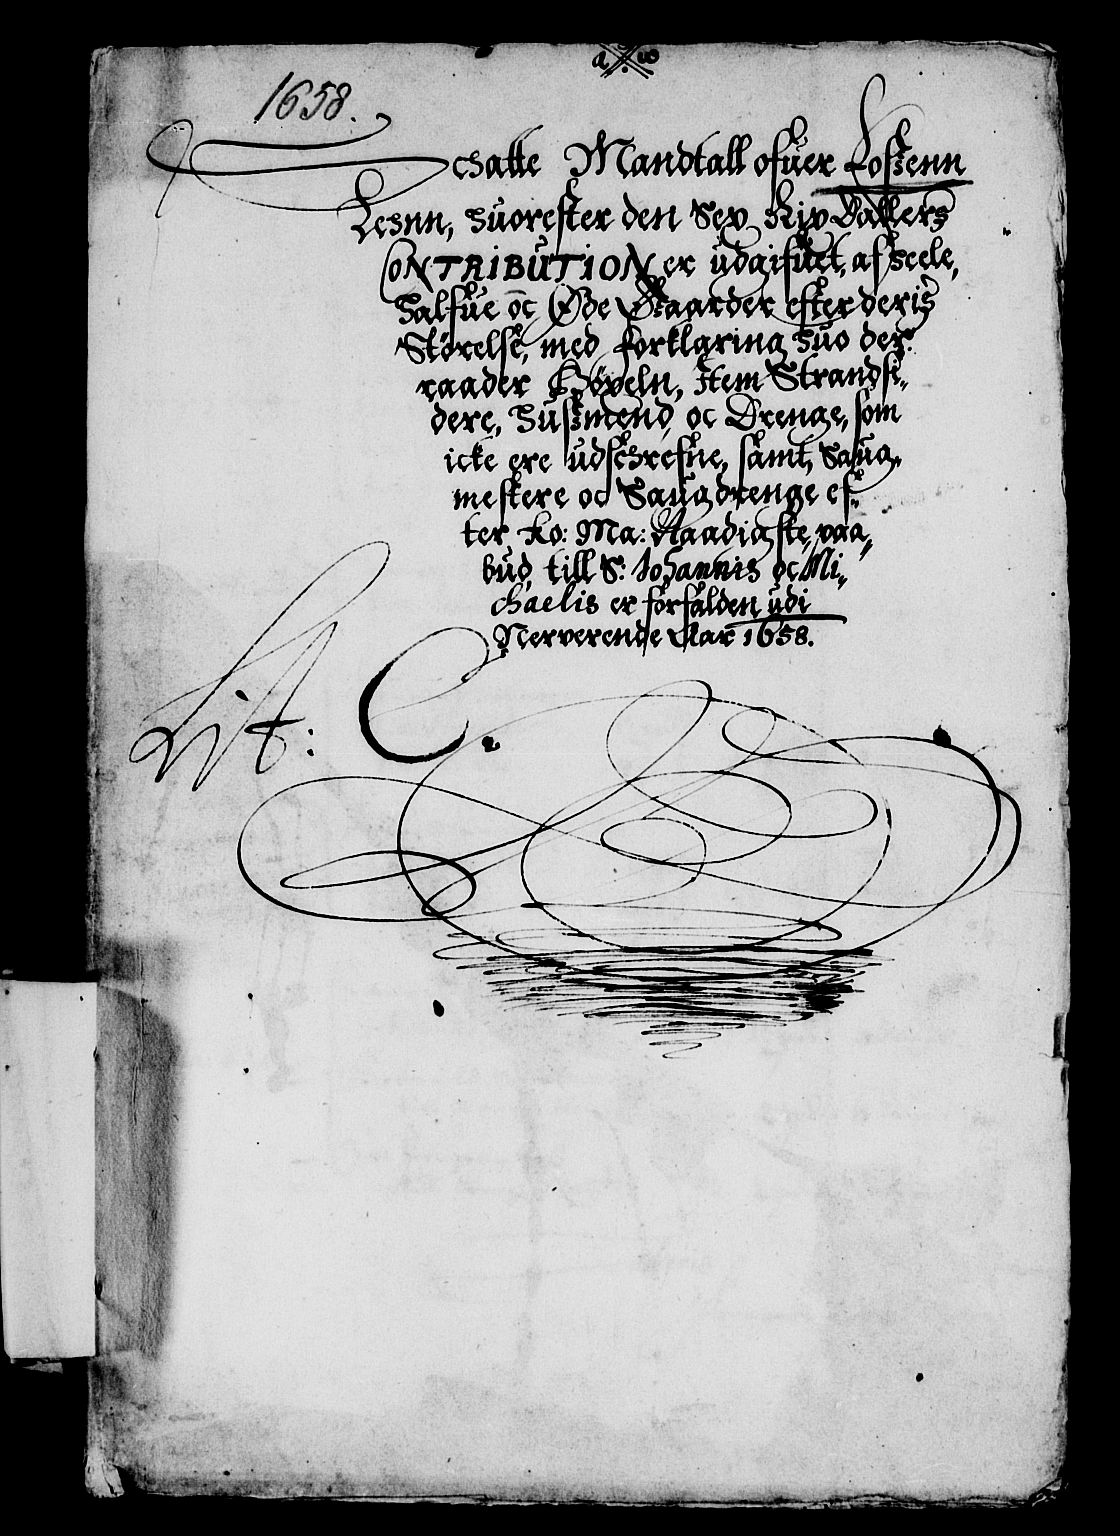 a w
1658.
Schatte Mandtall ofuer Foszenn
Lehnn, huorefter den Sex Rix Dallers
CONTRIBUTION er udgifuet, af heele,
halfue oc Øde Gaarder efter deris
Størelse, med forklaring huo der
raader Bøxeln, Item Strandsi„
dere, Huszmend oc Drenge, som
icke ere udschrefne, samt Saug„
mestere oc Saugdrenge ef„
ter Ko: Ma: Naadigste, paa„
bud, till S: Johannis oc Mi„
chaelis er forfalden udi
Nerverende Aar 1658.
Lit: C.